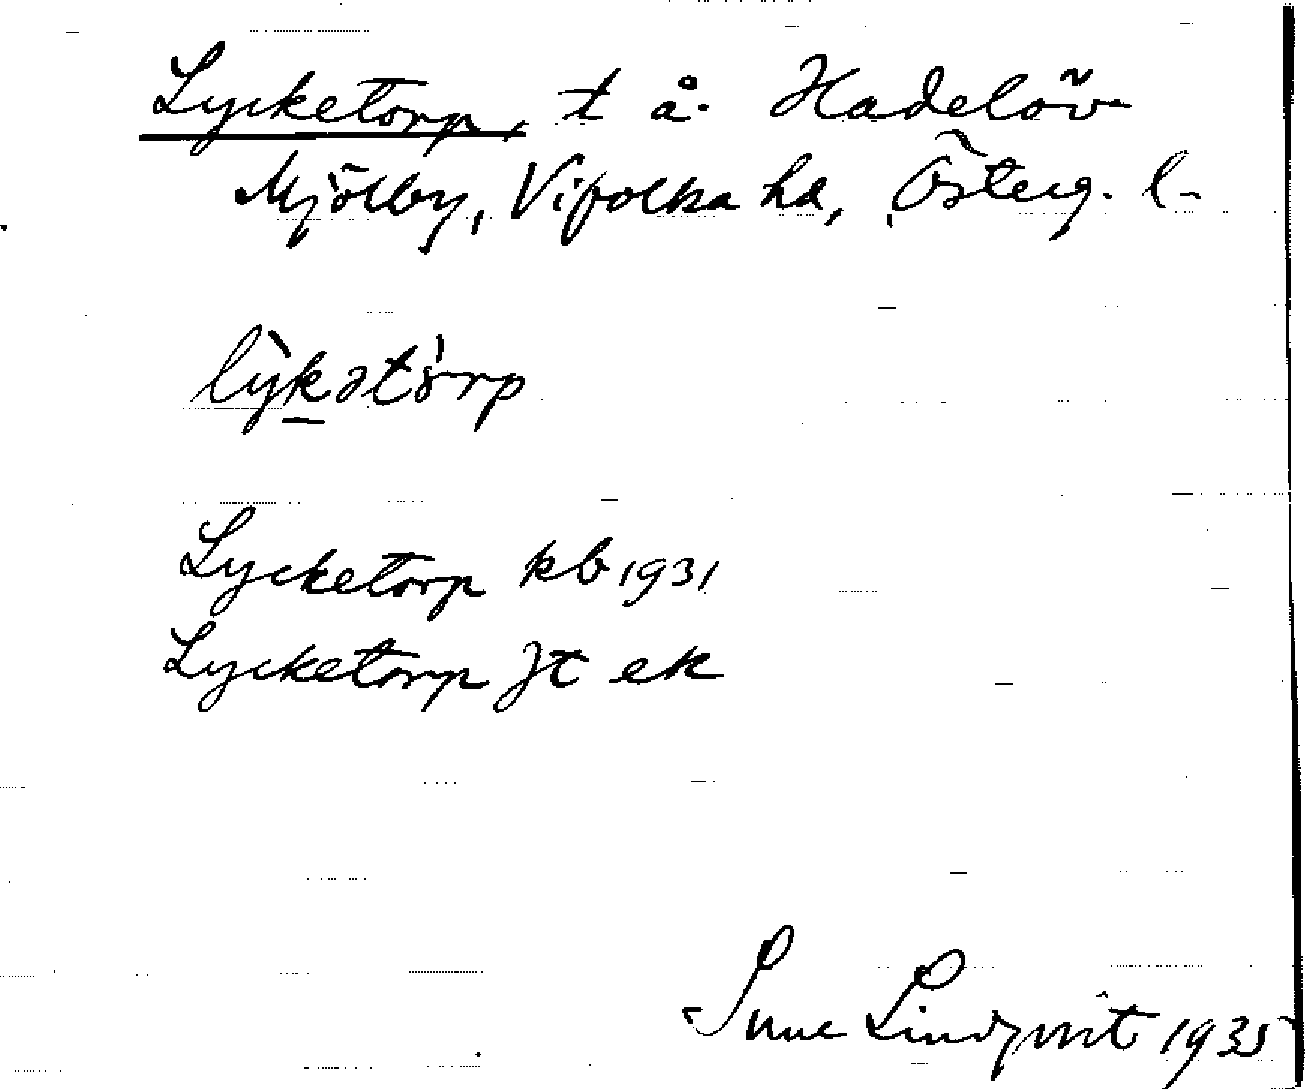 Lycketorp, t å. Hadelöv
Mjölby, Vifolka hd, Österg. l.
lỳkətòrp
Lycketorp kb 1931
Lycketorp Jt ek
Sune Lindqvist 1935